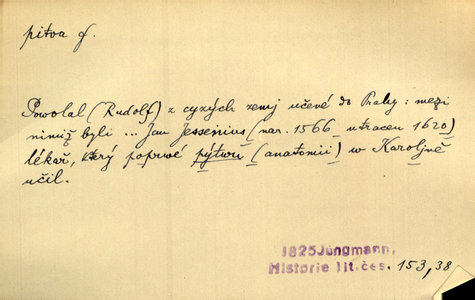 pitva f.
Powolal (Rudolf) z cyzých zemj učené do Prahy: mezi
nimiž byli ... Jan Jessenius (nar. 1566 utracen 1620)
lékař, který poprwé pýtwu (anatomii) w Karoljně
učil.
1825 Jungmann,
Historie lit. čes. 153,38